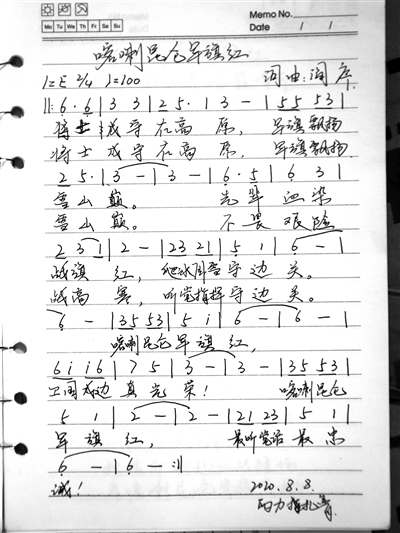 Memo No.
Mo Tu We Th Fr Sa Su
Date / /
喀喇昆仑军旗红
1=E 2/4 ♩=100 词曲:词序
||: 6 · 6 | 3 3 | 2 5 · 1 | 3 - | 5 5 5 3 |
将士戍守在高原, 军旗飘扬
将士戍守在高原, 军旗飘扬
2 5 · | 3 - | 3 - | 6 · 5 | 6 3 |
雪山巅。 先辈血染
雪山巅。 不畏艰险
2 3 1 | 2 - | 2 3 2 1 | 5 1 | 6 - |
战旗红, 爬冰卧雪守边关。
战高寒, 听党指挥守边关。
6 - | 3 5 5 3 | 5 i | 6 - | 6 - |
喀喇昆仑军旗红,
6 i i 6 | 7 5 | 3 - | 3 - | 3 5 5 3 |
卫国戍边真光荣! 喀喇昆仑
5 1 | 2 - | 2 - | 2 1 2 3 | 5 1 |
军旗红, 最听党话最忠
6 - | 6 - :||
诚!
2020.8.8.